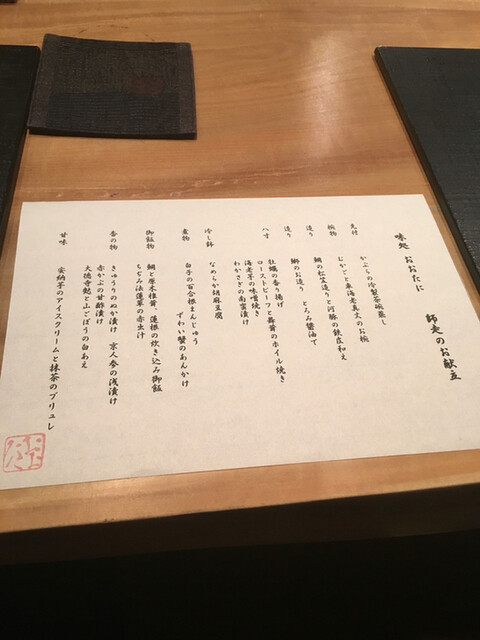 味処 おおたに
師走のお献立
先付
かぶらの冷製茶碗蒸し
椀物
むかごと車海老真丈のお椀
造り
鯛の松笠造りと河豚の鉄皮和え
造り
鰤のお造り とろみ醤油で
八寸
牡蠣の香り揚げ
ローストビーフと舞茸のホイル焼き
海老芋の味噌焼き
わかさぎの南蛮漬け
冷し鉢
なめらか胡麻豆腐
煮物
白子の百合根まんじゅう
ずわい蟹のあんかけ
御飯物
鯛と原木椎茸 蓮根の炊き込み御飯
ちぢみ法蓮草の赤出汁
香の物
きゅうりのぬか漬け 京人参の浅漬け
赤かぶの甘酢漬け
大徳寺麩と山ごぼうの白あえ
甘味
安納芋のアイスクリームと抹茶のブリュレ